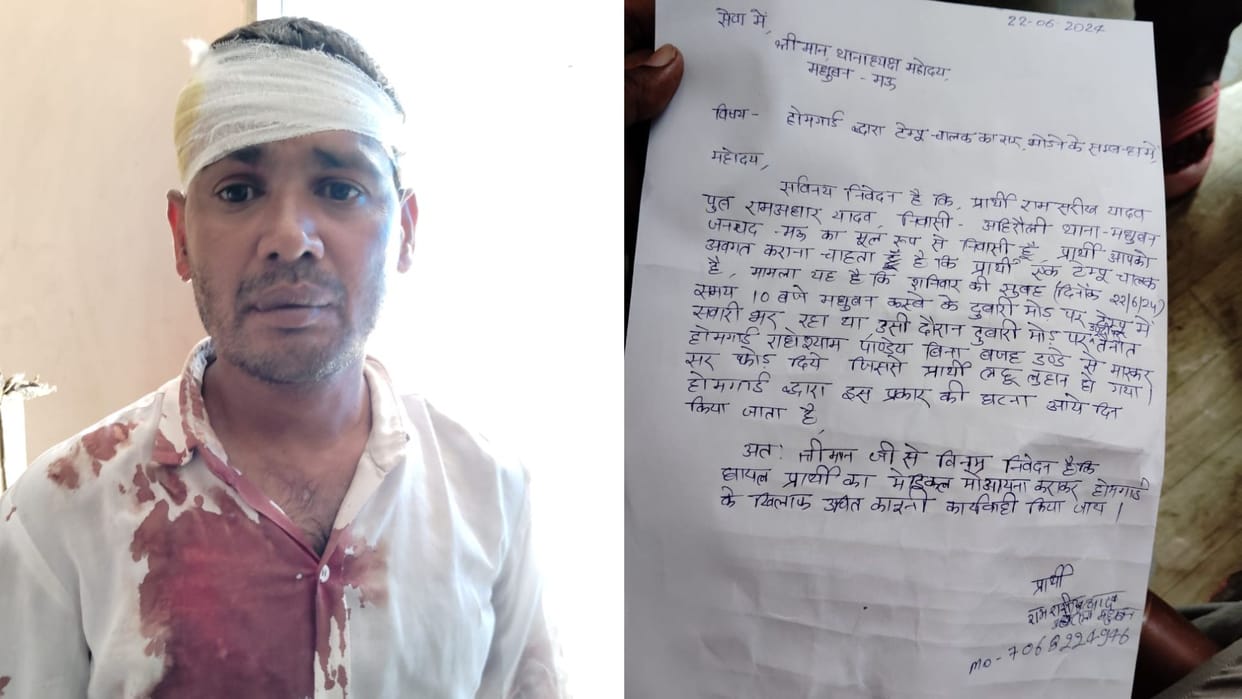 22-06-2024
सेवा में,
श्रीमान, थानाध्यक्ष महोदय
मधुबन - मऊ
विषय - होमगार्ड द्वारा टेम्पू चालक का सर फोड़ने के सम्बन्ध में,
महोदय,
सविनय निवेदन है कि, प्रार्थी रामसरीख यादव
पुत्र रामअधार यादव, निवासी - अहिरौली थाना - मधुबन
जनपद - मऊ का मूल रूप से निवासी हूँ, प्रार्थी आपको
अवगत कराना चाहता है कि प्रार्थी एक टेम्पू चालक
है, मामला यह है कि शनिवार की सुबह (दिनाँक 22/6/24)
समय 10 बजे मधुबन कस्बे के दुबारी मोड़ पर टेम्पू में
सवारी भर रहा था, उसी दौरान दुबारी मोड़ पर तैनात
होमगार्ड राधेश्याम पाण्डेय बिना वजह डण्डे से मारकर
सर फोड़ दिये जिससे प्रार्थी लहू लुहान हो गया।
होमगार्ड द्वारा इस प्रकार की घटना आये दिन
किया जाता है,
अतः श्रीमान जी से विनम्र निवेदन है कि
घायल प्रार्थी का मेडिकल मोआयना कराकर होमगार्ड
के खिलाफ उचित कानूनी कार्यवाही किया जाय।
प्रार्थी
राम सरीख यादव
मधुबन
mo - 7068224946